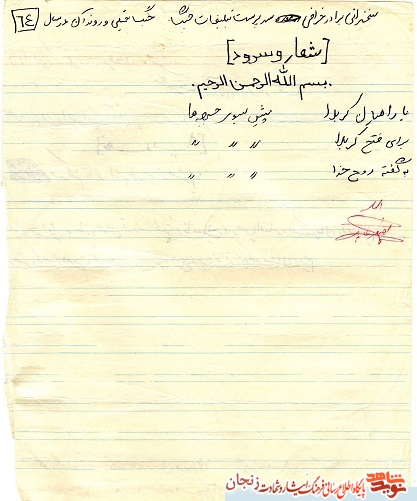 سخنرانی برادر خرافی سرپرست تبلیغات جبهه جنگ تحمیلی و روند آن در سال ٦٤
[شعار و سرود]
بسم الله الرحمن الرحیم.
با راهیان کربلا پیش بسوی جبهه ها
برای فتح کربلا " " "
به گفته روح خدا " " "
پایگاه اطلاع رسانی فرهنگ ایثار و شهادت زنجان
نوید شاهد